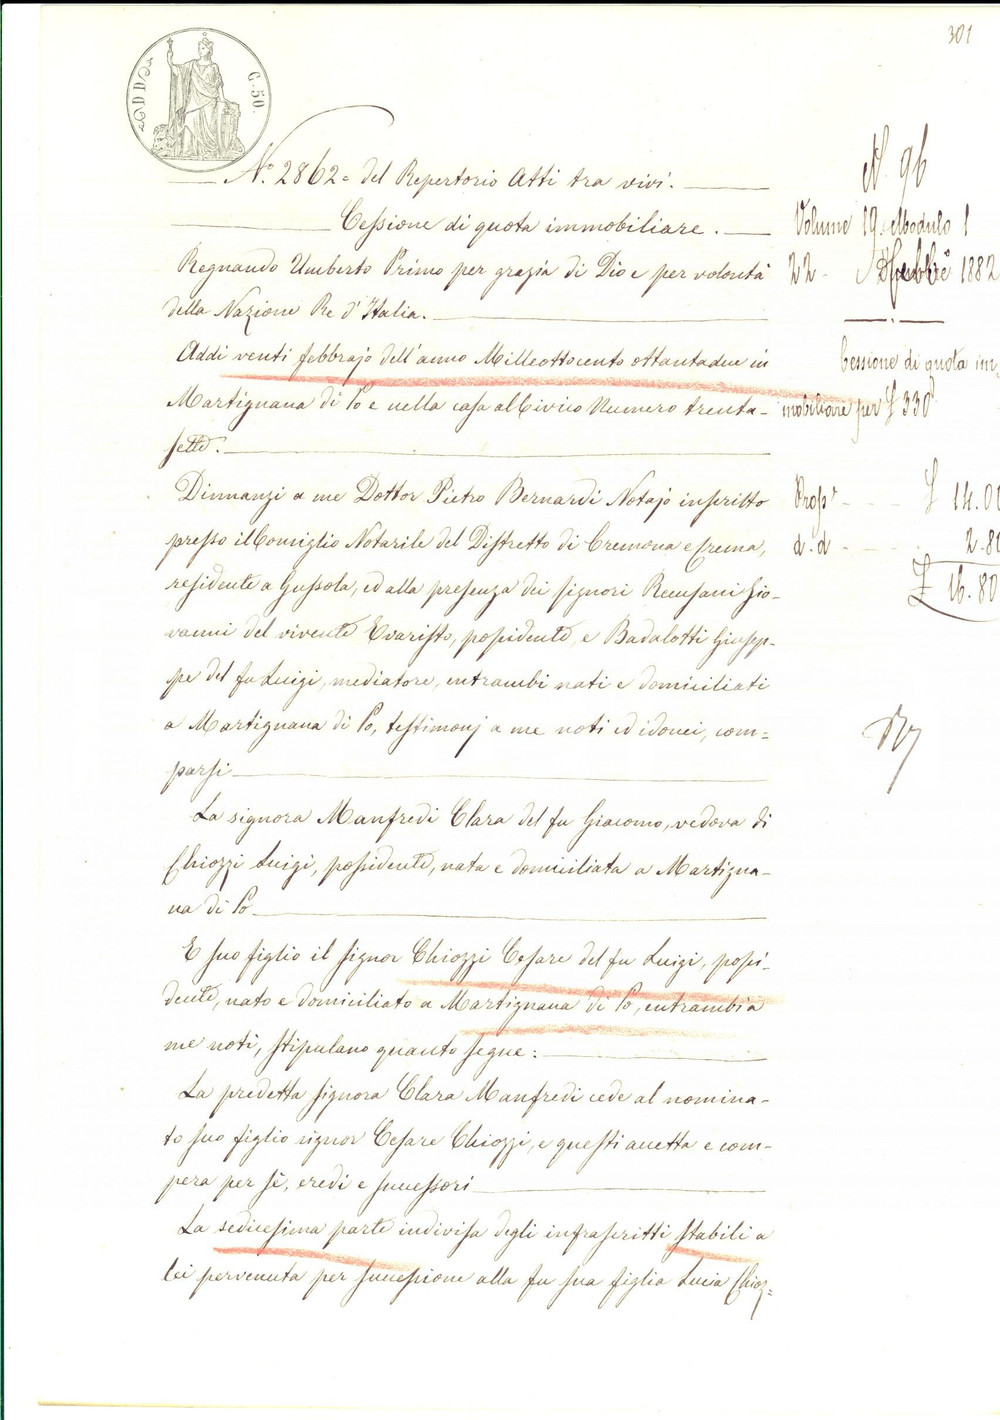 301
C. 50.
N.° 2862 = del Repertorio Atti tra vivi.
Cessione di quota immobiliare.
Regnando Umberto Primo per grazia di Dio e per volontà
della Nazione Re d'Italia.
Addi venti febbrajo dell'anno Milleottocento ottantadue in
Martignana di Po e nella casa al Civico Numero trenta-
sette.
Dinnanzi a me Dottor Pietro Bernardi Notajo inscritto
presso il Consiglio Notarile del Distretto di Cremona e Crema,
residente a Gussola, ed alla presenza dei signori Remsani Gio-
vanni del vivente Evaristo, possidente, e Badalotti Giusep-
pe del fu Luigi, mediatore, entrambi nati e domiciliati
a Martignana di Po, testimonj a me noti ed idonei, com=
parsi
La signora Manfredi Clara del fu Giacomo, vedova di
Chiozzi Luigi, possidente, nata e domiciliata a Martigna-
na di Po
E suo figlio il signor Chiozzi Cesare del fu Luigi, possi-
dente, nato e domiciliato a Martignana di Po, entrambi a
me noti, stipulano quanto segue:
La predetta signora Clara Manfredi cede al nomina-
to suo figlio signor Cesare Chiozzi, e questi accetta e com-
pera per sè, eredi e successori
La sedicesima parte indivisa degli infrascritti stabili a
lei pervenuta per successione alla fu sua figlia Lucia Chioz=
N. 96
Volume 19. Modulo 1
22 Febbr 1882
Cessione di quota im=
mobiliare per £ 330
Prop. £ 14.00
d. d 2.80
£ 16.80